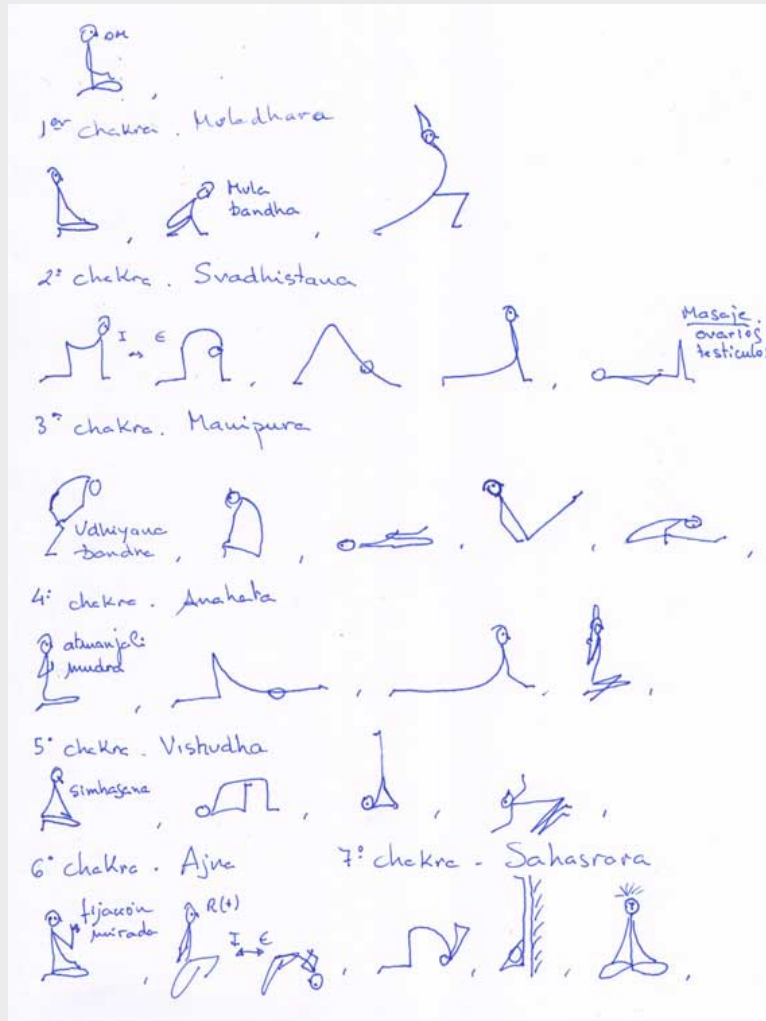 OM
1er chakra. Muladhara
Mula
bandha
2º chakra. Svadhistana
I ↔ E
Masaje.
ovarios
testiculos
3er chakra. Manipura
Udhiyana
bandha
4º chakra. Anahata
atmanjali
mudra
5º chakra. Vishudha
simhasana
6º chakra. Ajna
7º chakra - Sahasrara
fijación
mirada
R(+)
I ↔ E